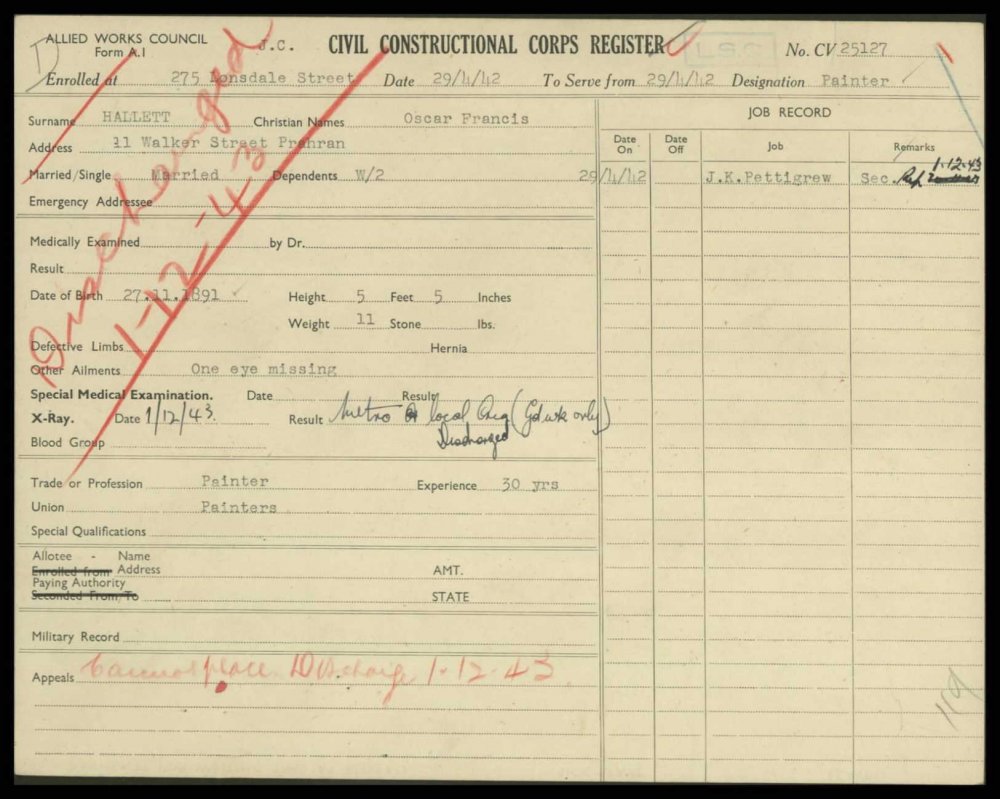 D ALLIED WORKS COUNCIL J.C. CIVIL CONSTRUCTIONAL CORPS REGISTER LSC No. CV 25127
Form A.1
Enrolled at 275 Lonsdale Street Date 29/4/42 To Serve from 29/4/42 Designation Painter
Discharged
1-12-43
Surname HALLETT Christian Names Oscar Francis
Address 11 Walker Street Prahran
Married/Single Married Dependents W/2
Emergency Addressee
JOB RECORD
Date On Date Off Job Remarks
29/4/42 J.K.Pettigrew Sec. 1-12-43
Medically Examined by Dr.
Result
Date of Birth 27.11.1891 Height 5 Feet 5 Inches
Weight 11 Stone lbs.
Defective Limbs Hernia
Other Ailments One eye missing
Special Medical Examination. Date Result
X-Ray. Date 1/12/43. Result Metro or local Area (Gd wk only)
Discharged
Blood Group
Trade or Profession Painter Experience 30 yrs
Union Painters
Special Qualifications
Allotee - Name
Enrolled from Address AMT.
Paying Authority
Seconded From/To STATE
Military Record
Appeals Cannot place Discharge 1-12-43